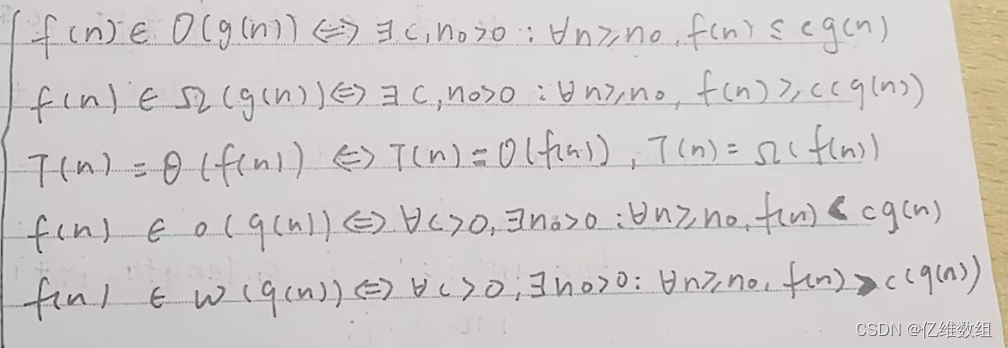 f(n) ∈ O(g(n)) ⇔ ∃ c, n₀>0 : ∀n≥n₀, f(n) ≤ cg(n)
f(n) ∈ Ω(g(n)) ⇔ ∃ c, n₀>0 : ∀n≥n₀, f(n) ≥ c(g(n))
T(n) = Θ(f(n)) ⇔ T(n) = O(f(n)), T(n) = Ω(f(n))
f(n) ∈ o(g(n)) ⇔ ∀c>0, ∃n₀>0 : ∀n≥n₀, f(n) < cg(n)
f(n) ∈ ω(g(n)) ⇔ ∀c>0, ∃n₀>0 : ∀n≥n₀, f(n) > c(g(n))
CSDN @亿维数组